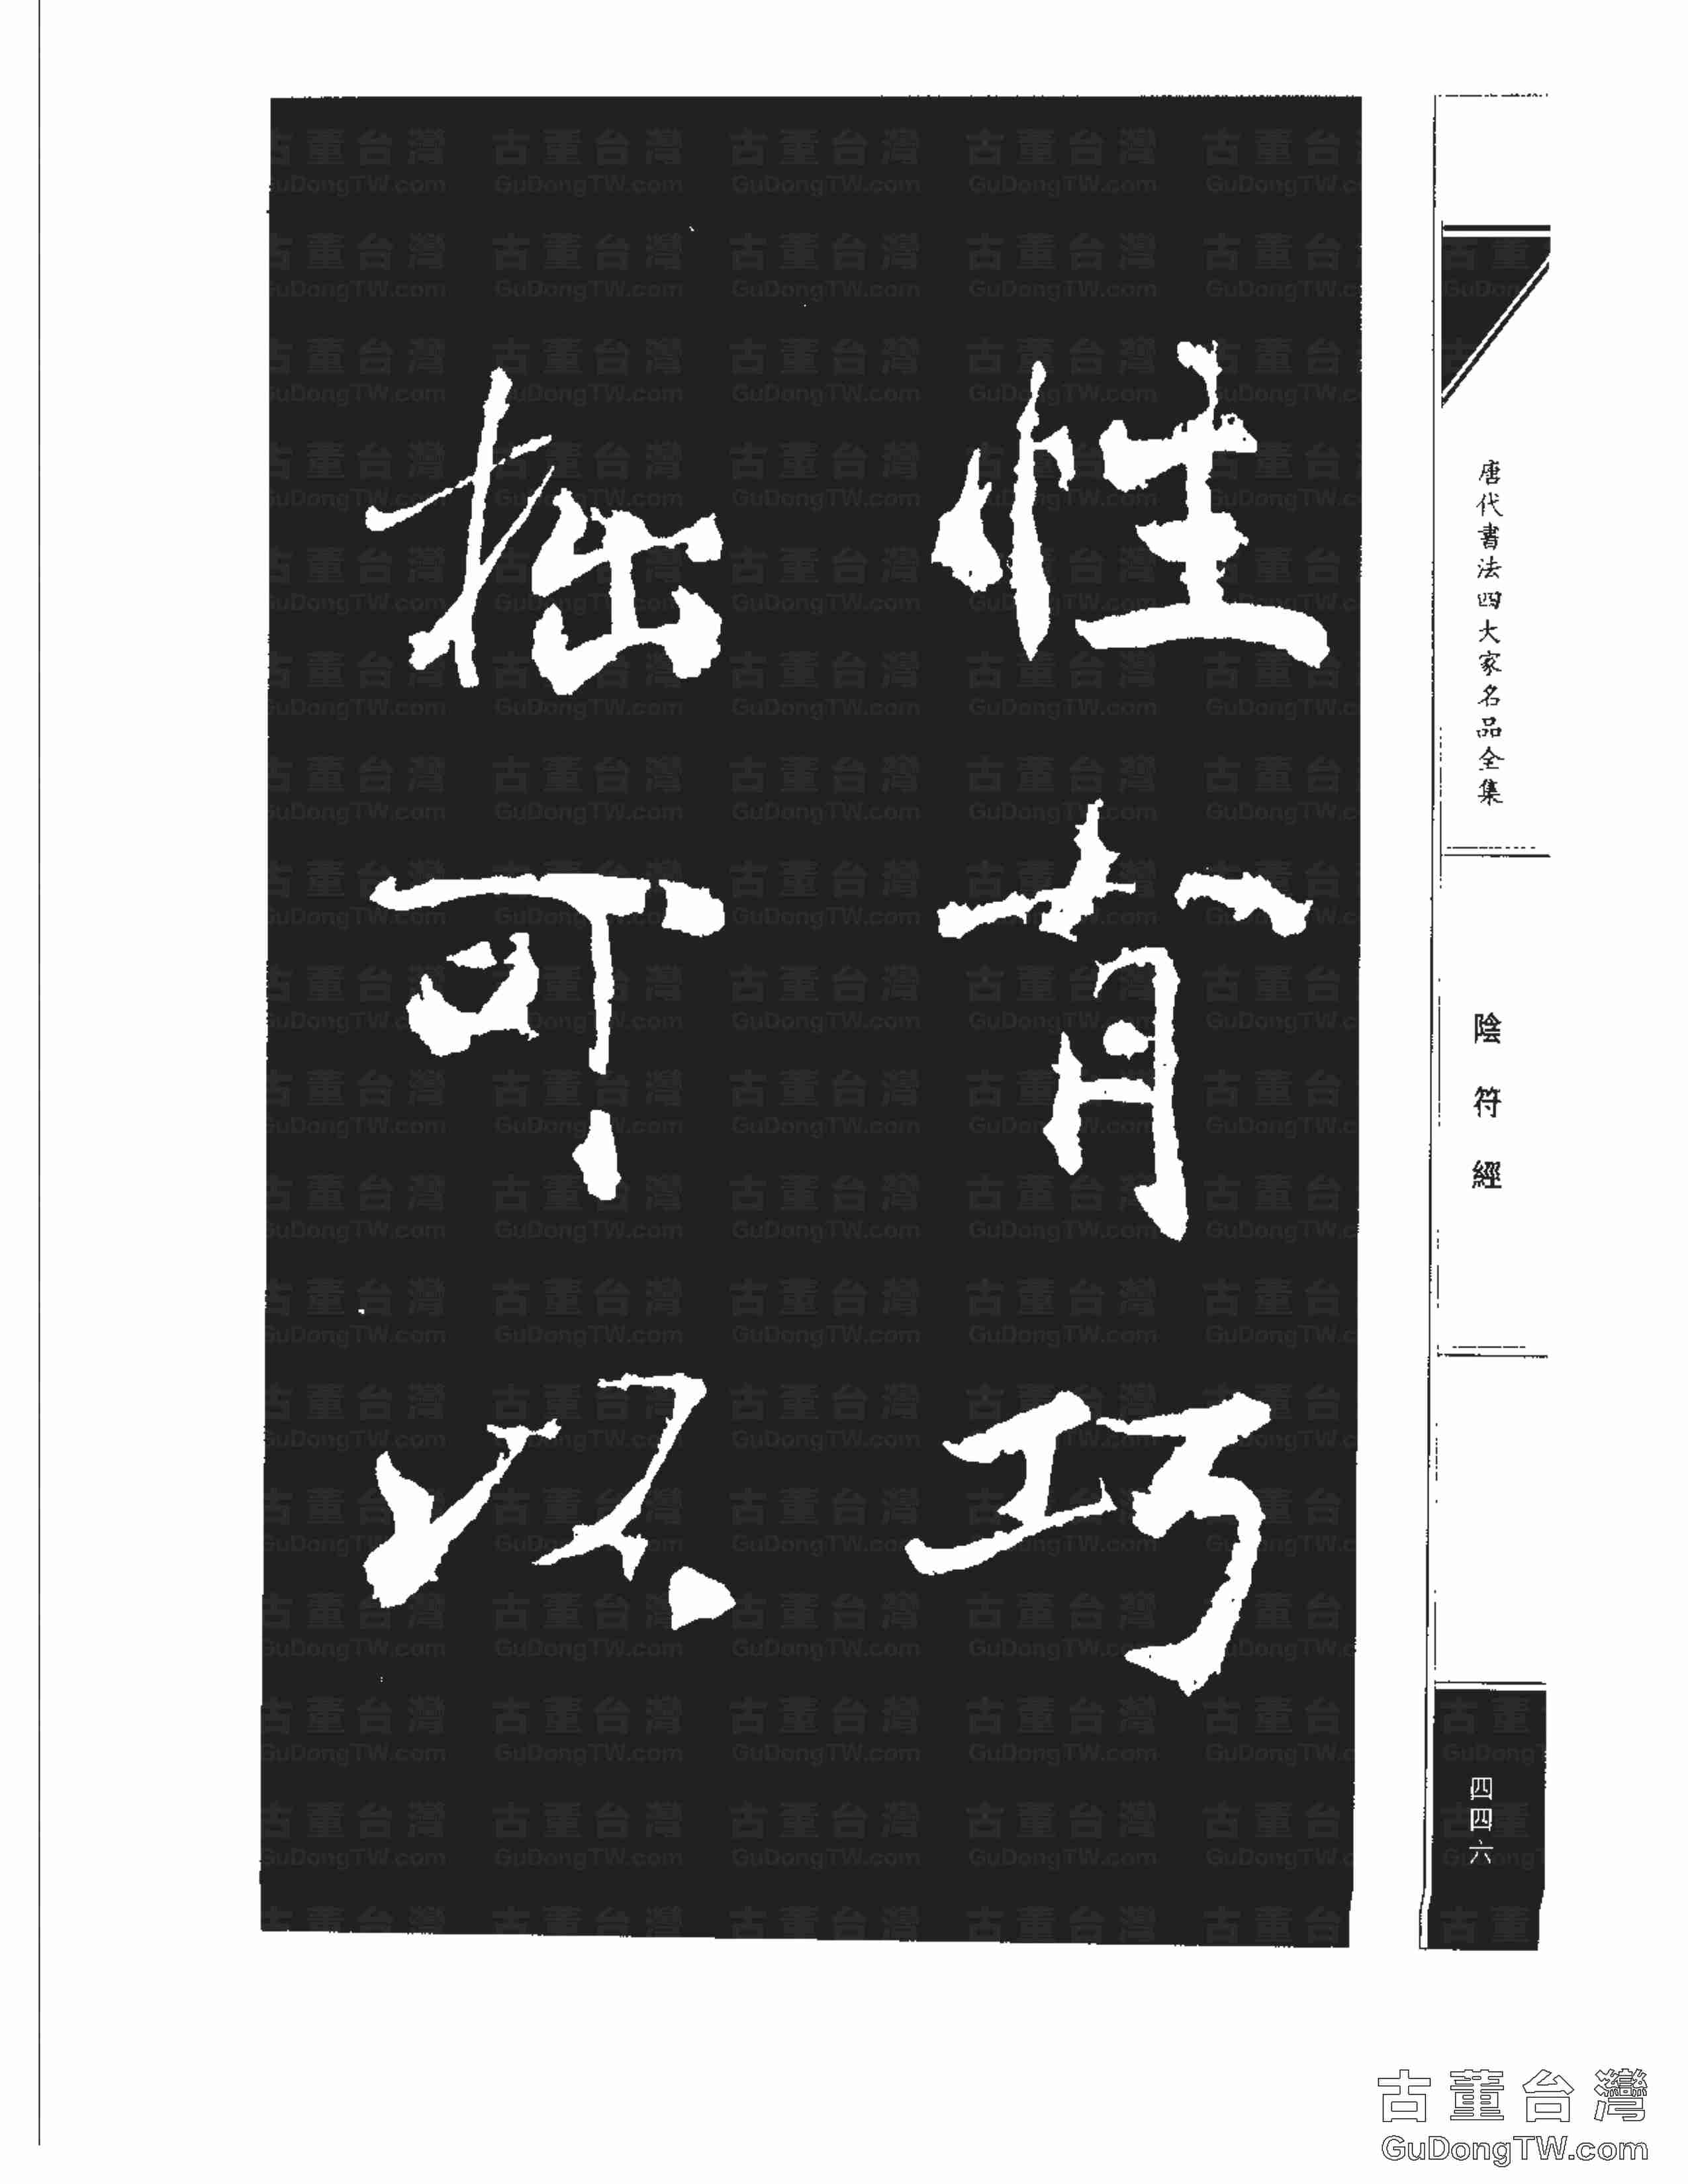 唐代書法四大家名品全集
陰符經
四四六
性有巧
拙可以
古董台灣
GuDongTW.com